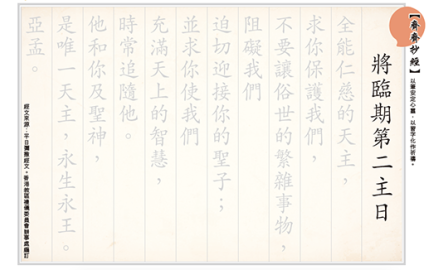 【齊齊抄經】以筆安定心靈,以習字化作祈禱。
將臨期第二主日
全能仁慈的天主,
求你保護我們,
不要讓俗世的繁雜事物,
阻礙我們
迫切迎接你的聖子;
並求你使我們
充滿天上的智慧,
時常追隨他。
他和你及聖神,
是唯一天主,永生永王。
亞孟。
經文來源:平日彌撒經文。香港教區禮儀委員會辦事處編訂